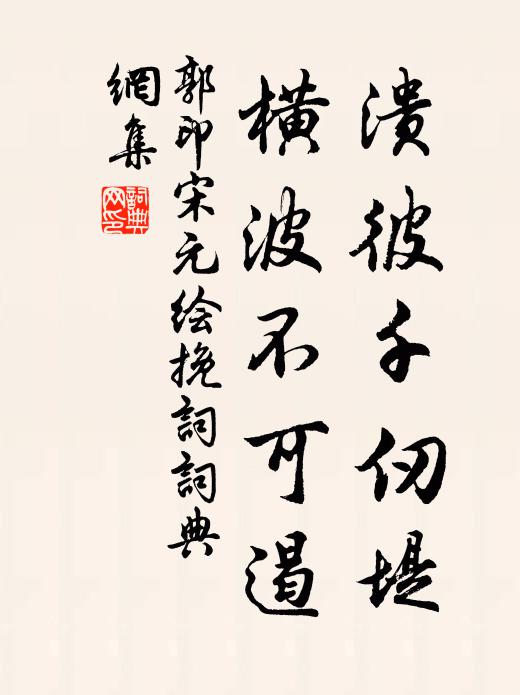 潰彼千仞堤
橫波不可遏
郭印宋元绘挽詞詞典
網集
詞典网印